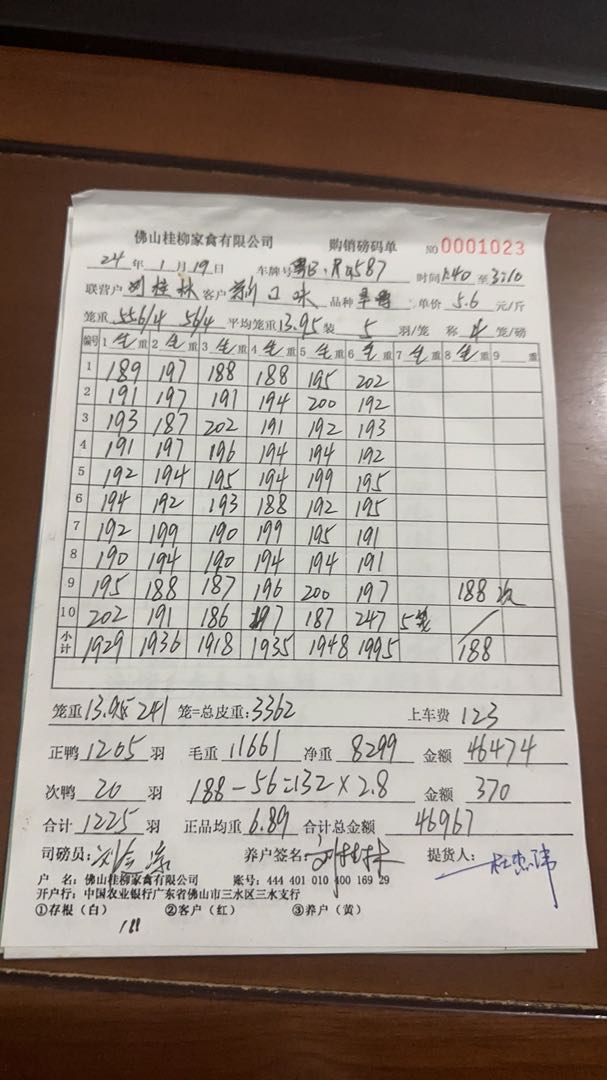 佛山桂柳家禽有限公司 购销磅码单 NO 0001023
24年1月19日 车牌号 时间1:40至3:10
联营户刘桂林客户新口味品种 单价5.6元/斤
笼重556/4 56/4 平均笼重13.95装5羽/笼 称4笼/磅
编号 1毛重 2毛重 3毛重 4毛重 5毛重 6毛重 7毛重 8毛重 9 重
1 189 197 188 188 195 202
2 191 197 191 194 200 192
3 193 187 202 191 192 193
4 191 197 196 194 194 192
5 192 194 195 194 199 195
6 194 192 193 188 192 195
7 192 199 190 199 195 191
8 190 194 190 194 194 191
9 195 188 187 196 200 197 188 次
10 202 191 186 197 187 247 5笼
小计 1929 1936 1918 1935 1948 1995 188
笼重13.95 241 笼=总皮重:3362 上车费123
正鸭1205羽 毛重11661 净重8299 金额46474
次鸭20羽 188-56=132×2.8 金额370
合计1225羽 正品均重6.89 合计总金额46967
司磅员: 养户签名:刘桂林 提货人:
户 名:佛山桂柳家禽有限公司 账号:444 401 010 400 169 29
开户行:中国农业银行广东省佛山市三水区三水支行
①存根(白) ②客户(红) ③养户(黄)
188